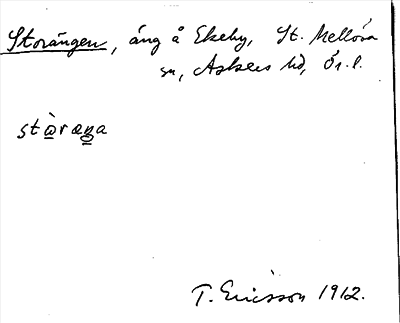 Storängen, äng å Ekeby, St. Mellösa
sn, Askers hd, Ör. l.
stàræŋa
T. Ericsson 1912.